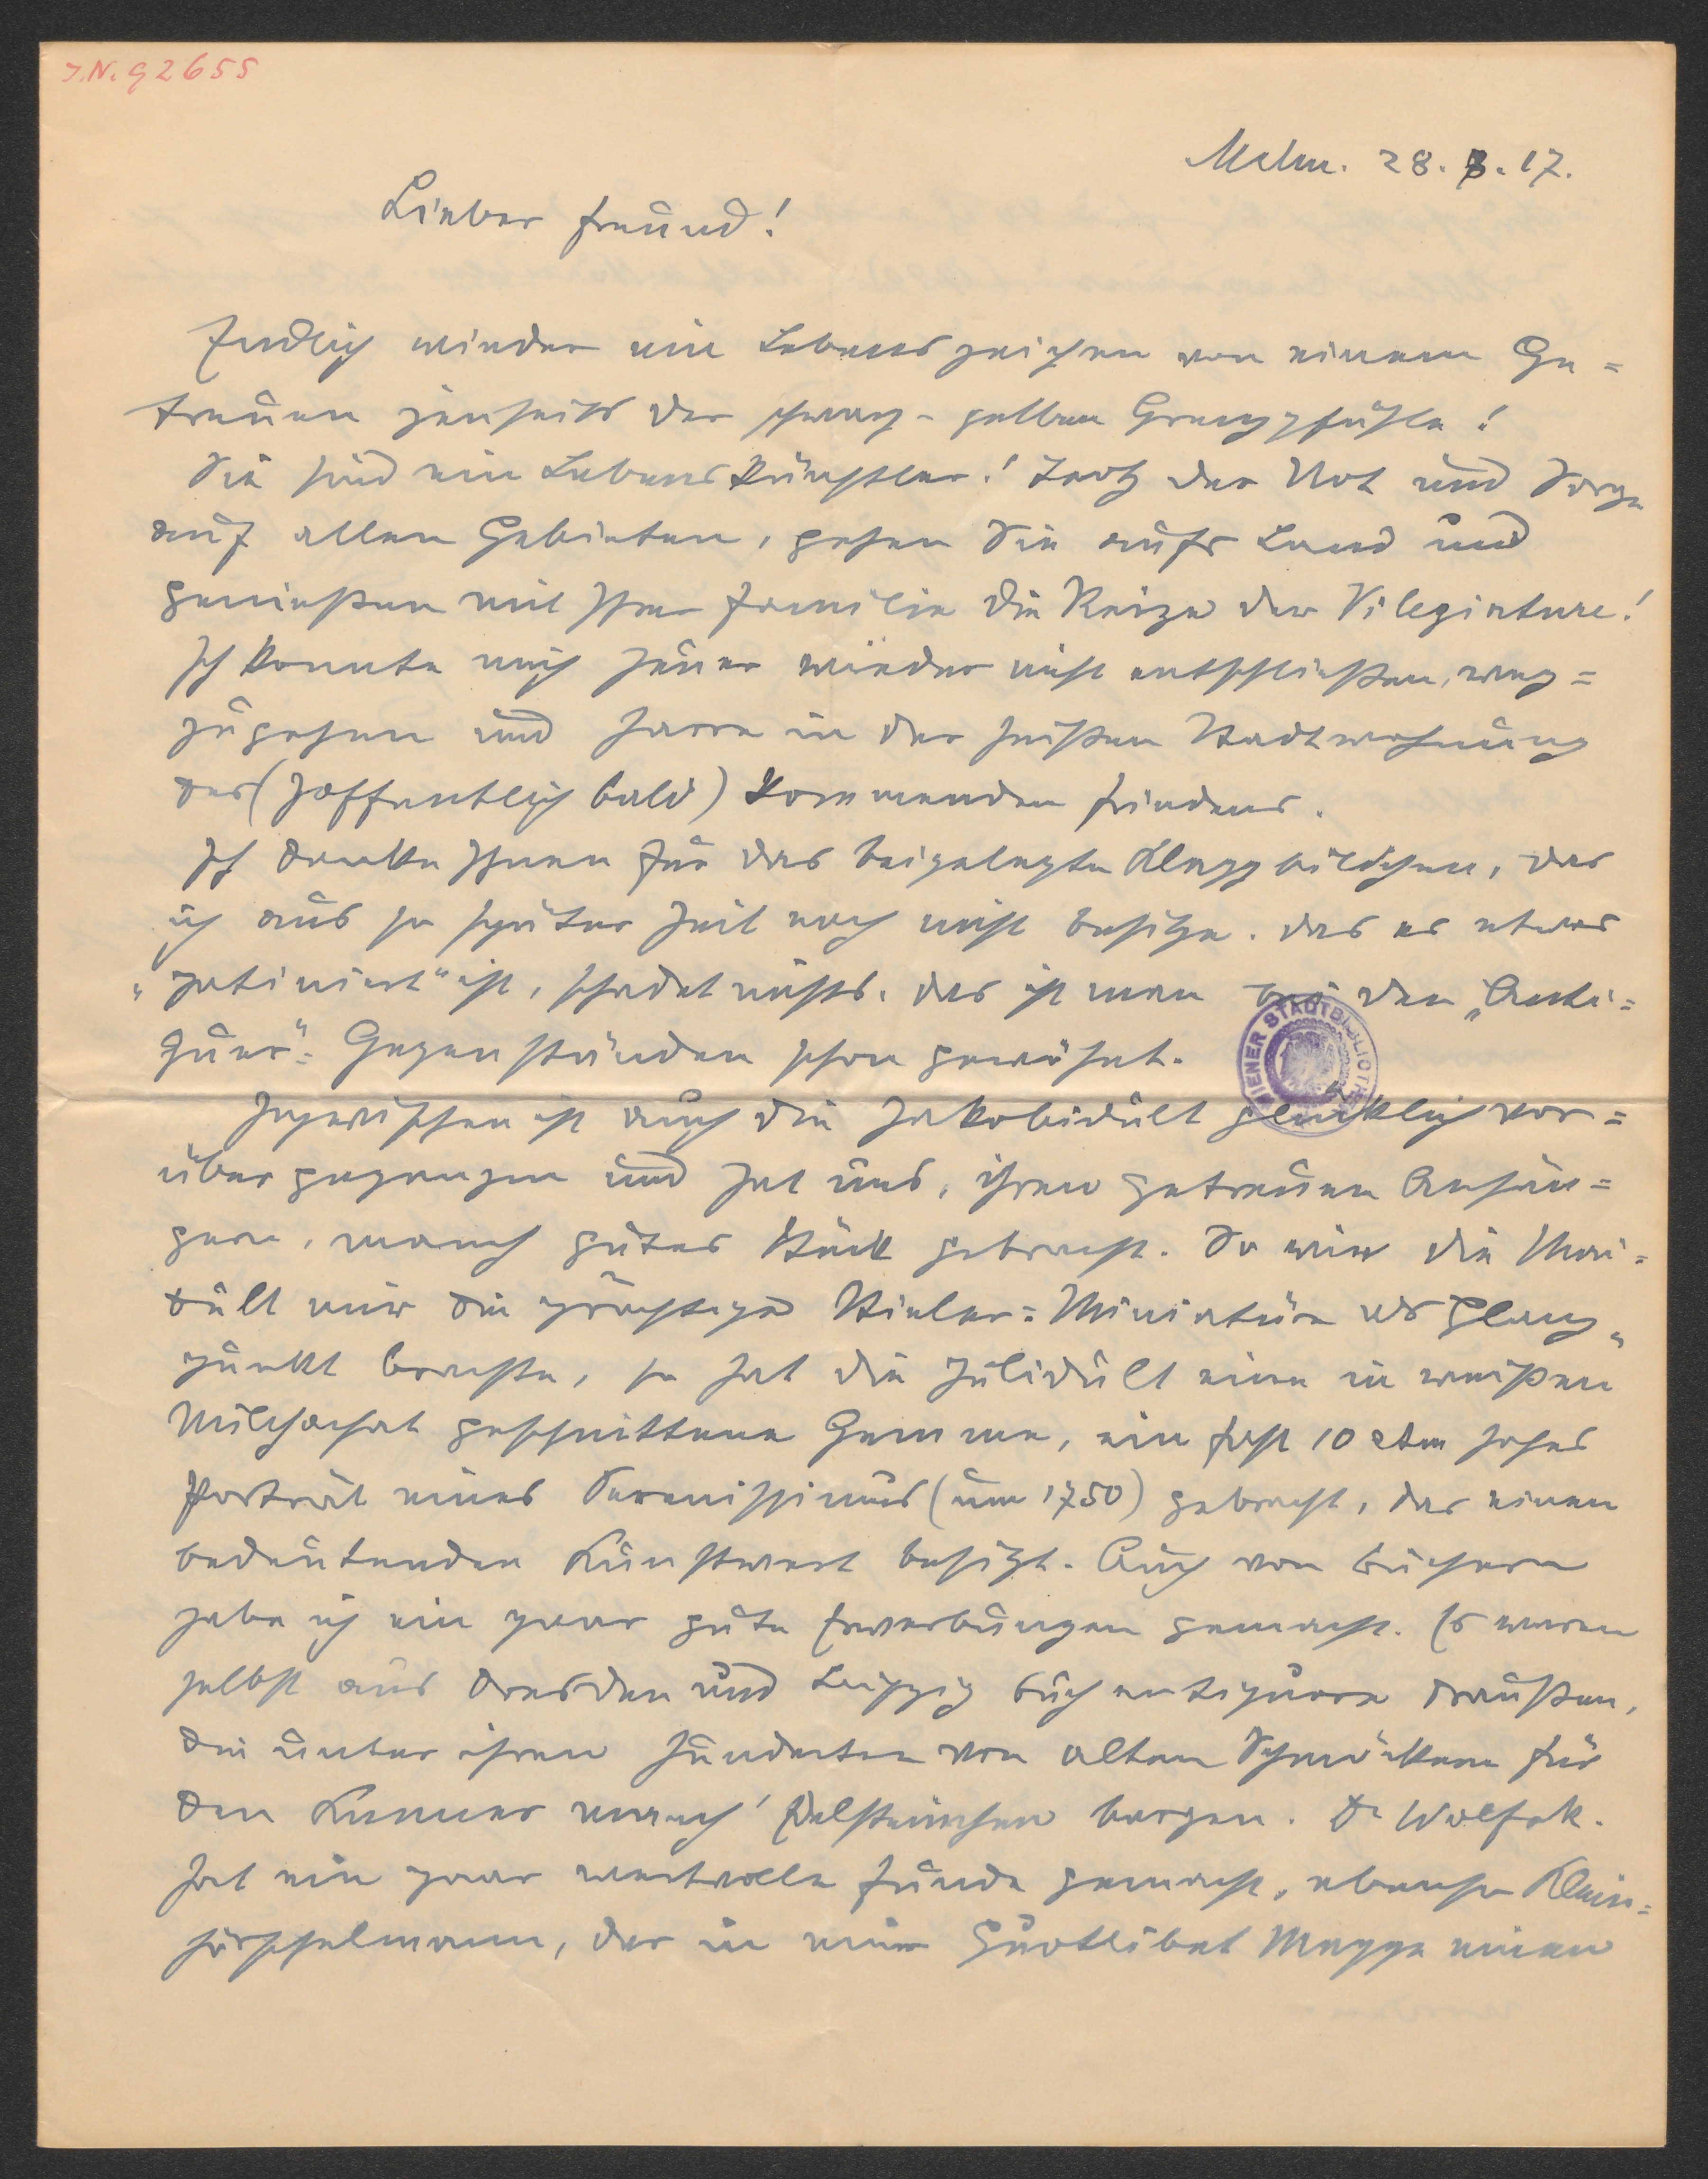 J.N. 92655
Mchn. 28.7.17.
Lieber Freund!
Endlich wieder ein Lebenszeichen von einem Ge=
treuen jenseits der schwarz-gelben Grenzpfähle!
Sie sind ein Lebenskünstler! Trotz der Not und Sorge
auf allen Gebieten, gehen Sie aufs Land und
genießen mit Ihrer Familie die Reize der Vilegiature!
Ich konnte mich heuer wieder nicht entschließen, weg=
zugehen und harre in der heißen Stadtwohnung
des (hoffentlich bald) kommenden Friedens.
Ich danke Ihnen für das beigelegte Bildchen, das
ich aus so später Zeit noch nicht besitze. Das es etwas
„patiniert" ist, schadet nichts. Das ist man bei den „Anti=
quar"= Gegenständen schon gewöhnt.
WIENER STADTBIBLIOTHEK
Inzwischen ist auch die Jakobidult glücklich vor=
übergegangen und hat uns, ihren getreuen Anhän=
gern, manch gutes Stück gebracht. So wie die Mai=
dult mir die prächtige Stieler=Miniatüre als Glanz„
punkt brachte, so hat die Julidult eine in weißen
Milchachat geschnittene Gemme, ein fast 10 ctm hohes
Porträt eines Serenissimus (um 1750) gebracht, das einen
bedeutenden Kunstwert besitzt. Auch von Büchern
habe ich ein paar gute Erwerbungen gemacht. Es waren
selbst aus Dresden und Leipzig Buchantiquare draußen,
die unter ihren Hunderten von alten Schmökern für
den Kenner manch' Edelsteinchen bargen. Dr Wolfsk.
hat ein paar wertvolle Funde gemacht, ebenso Klein=
hörschelmann, der in einer Quotlibet Mappe einen